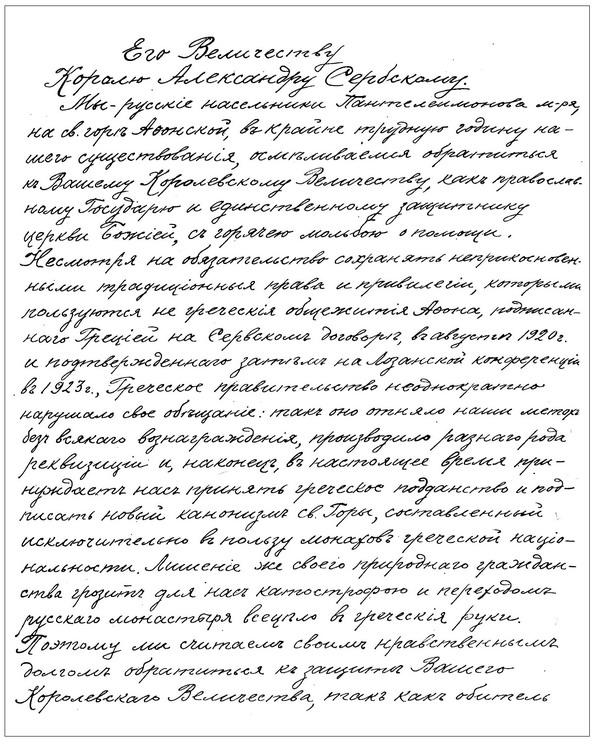 Его Величеству
Королю Александру Сербскому.
Мы-русскіе насельники Пантелеимонова м-ря,
на св. горѣ Аѳонской, въ крайне трудную годину на-
шего существованія, осмѣливаемся обратиться
къ Вашему Королевскому Величеству, какъ православ-
ному Государю и единственному защитнику
церкви Божіей, съ горячею мольбою о помощи.
Несмотря на обязательство сохранять неприкосновен-
ными традиціонныя права и привилегіи, которыми
пользуются не греческія общежитія Аѳона, подписан-
наго Греціей на Севрскомъ договорѣ, въ августѣ 1920г.
и подтвержденнаго затѣмъ на Лозанской конференціи
въ 1923г., Греческое правительство неоднократно
нарушало свое обѣщаніе: такъ оно отняло наши метохи
безъ всякаго вознагражденія, производило разнаго рода
реквизиціи и, наконецъ, въ настоящее время при-
нуждаетъ насъ принять греческое подданство и под-
писать новый канонизмъ св. Горы, составленный
исключительно въ пользу монаховъ греческой націо-
нальности. Лишеніе же своего природнаго граждан-
ства грозитъ для насъ катострофою и переходомъ
русскаго монастыря всецѣло въ греческія руки.
Поэтому ми считаемъ своимъ нравственнымъ
долгомъ обратиться къ защитѣ Вашего
Королевскаго Величества, такъ какъ обитель